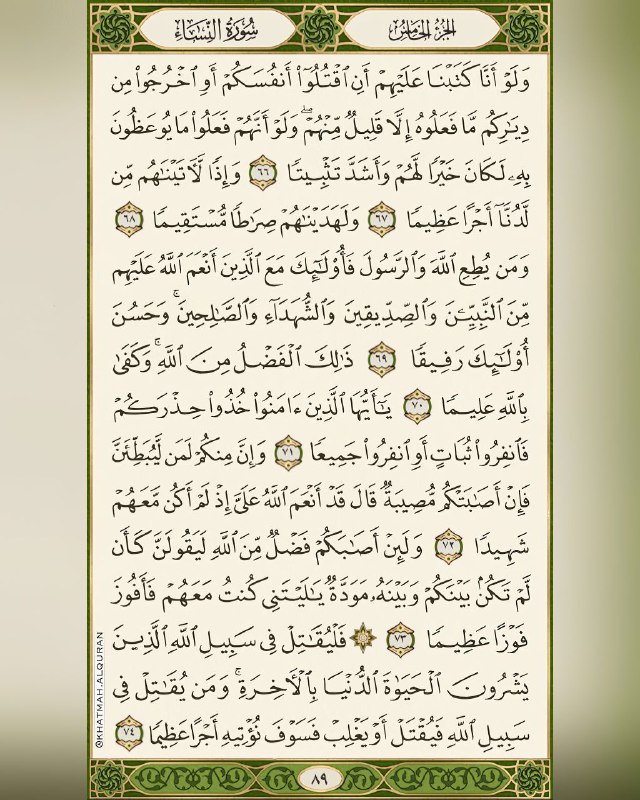 سُورَةُ النِّسَاءِ
الجُزْءُ الخَامِسُ
وَلَوْ أَنَّا كَتَبْنَا عَلَيْهِمْ أَنِ ٱقْتُلُوٓا۟ أَنفُسَكُمْ أَوِ ٱخْرُجُوا۟ مِن
دِيَٰرِكُم مَّا فَعَلُوهُ إِلَّا قَلِيلٌ مِّنْهُمْ ۖ وَلَوْ أَنَّهُمْ فَعَلُوا۟ مَا يُوعَظُونَ
بِهِۦ لَكَانَ خَيْرًا لَّهُمْ وَأَشَدَّ تَثْبِيتًا ٦٦ وَإِذًا لَّءَاتَيْنَٰهُم مِّن
لَّدُنَّآ أَجْرًا عَظِيمًا ٦٧ وَلَهَدَيْنَٰهُمْ صِرَٰطًا مُّسْتَقِيمًا ٦٨
وَمَن يُطِعِ ٱللَّهَ وَٱلرَّسُولَ فَأُو۟لَٰٓئِكَ مَعَ ٱلَّذِينَ أَنْعَمَ ٱللَّهُ عَلَيْهِم
مِّنَ ٱلنَّبِيِّـۧنَ وَٱلصِّدِّيقِينَ وَٱلشُّهَدَآءِ وَٱلصَّٰلِحِينَ ۚ وَحَسُنَ
أُو۟لَٰٓئِكَ رَفِيقًا ٦٩ ذَٰلِكَ ٱلْفَضْلُ مِنَ ٱللَّهِ ۚ وَكَفَىٰ
بِٱللَّهِ عَلِيمًا ٧٠ يَٰٓأَيُّهَا ٱلَّذِينَ ءَامَنُوا۟ خُذُوا۟ حِذْرَكُمْ
فَٱنفِرُوا۟ ثُبَاتٍ أَوِ ٱنفِرُوا۟ جَمِيعًا ٧١ وَإِنَّ مِنكُمْ لَمَن لَّيُبَطِّئَنَّ
فَإِنْ أَصَٰبَتْكُم مُّصِيبَةٌ قَالَ قَدْ أَنْعَمَ ٱللَّهُ عَلَىَّ إِذْ لَمْ أَكُن مَّعَهُمْ
شَهِيدًا ٧٢ وَلَئِنْ أَصَٰبَكُمْ فَضْلٌ مِّنَ ٱللَّهِ لَيَقُولَنَّ كَأَن
لَّمْ تَكُنۢ بَيْنَكُمْ وَبَيْنَهُۥ مَوَدَّةٌ يَٰلَيْتَنِى كُنتُ مَعَهُمْ فَأَفُوزَ
فَوْزًا عَظِيمًا ٧٣ ۞ فَلْيُقَٰتِلْ فِى سَبِيلِ ٱللَّهِ ٱلَّذِينَ
يَشْرُونَ ٱلْحَيَوٰةَ ٱلدُّنْيَا بِٱلْءَاخِرَةِ ۚ وَمَن يُقَٰتِلْ فِى
سَبِيلِ ٱللَّهِ فَيُقْتَلْ أَوْ يَغْلِبْ فَسَوْفَ نُؤْتِيهِ أَجْرًا عَظِيمًا ٧٤
٨٩
@KHATMAH.ALQURAN